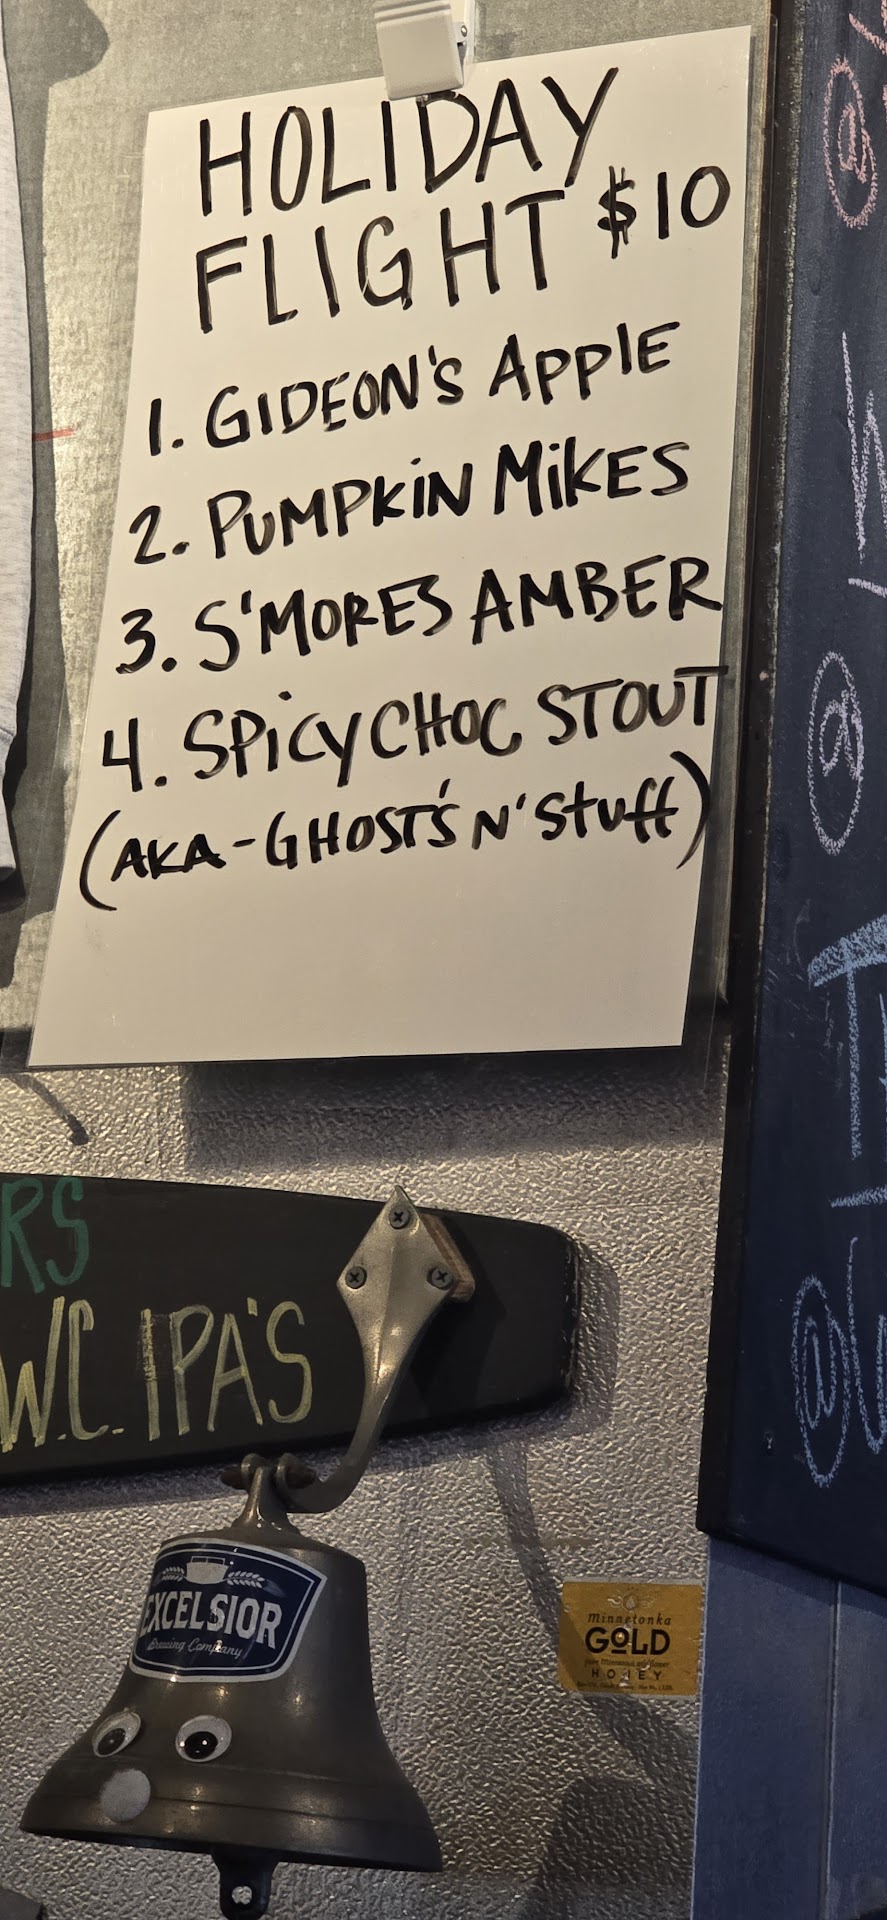 HOLIDAY
FLIGHT $10
1. GIDEON'S APPlE
2. PUMPKiN MiKES
3. S'MORES AMBER
4. SPiCY CHOC STOUT
(AKA-GHOST'S N' Stuff)
RS
W.C. IPA'S
EXCELSIOR
Brewing Company
Minnetonka
GOLD
HONEY